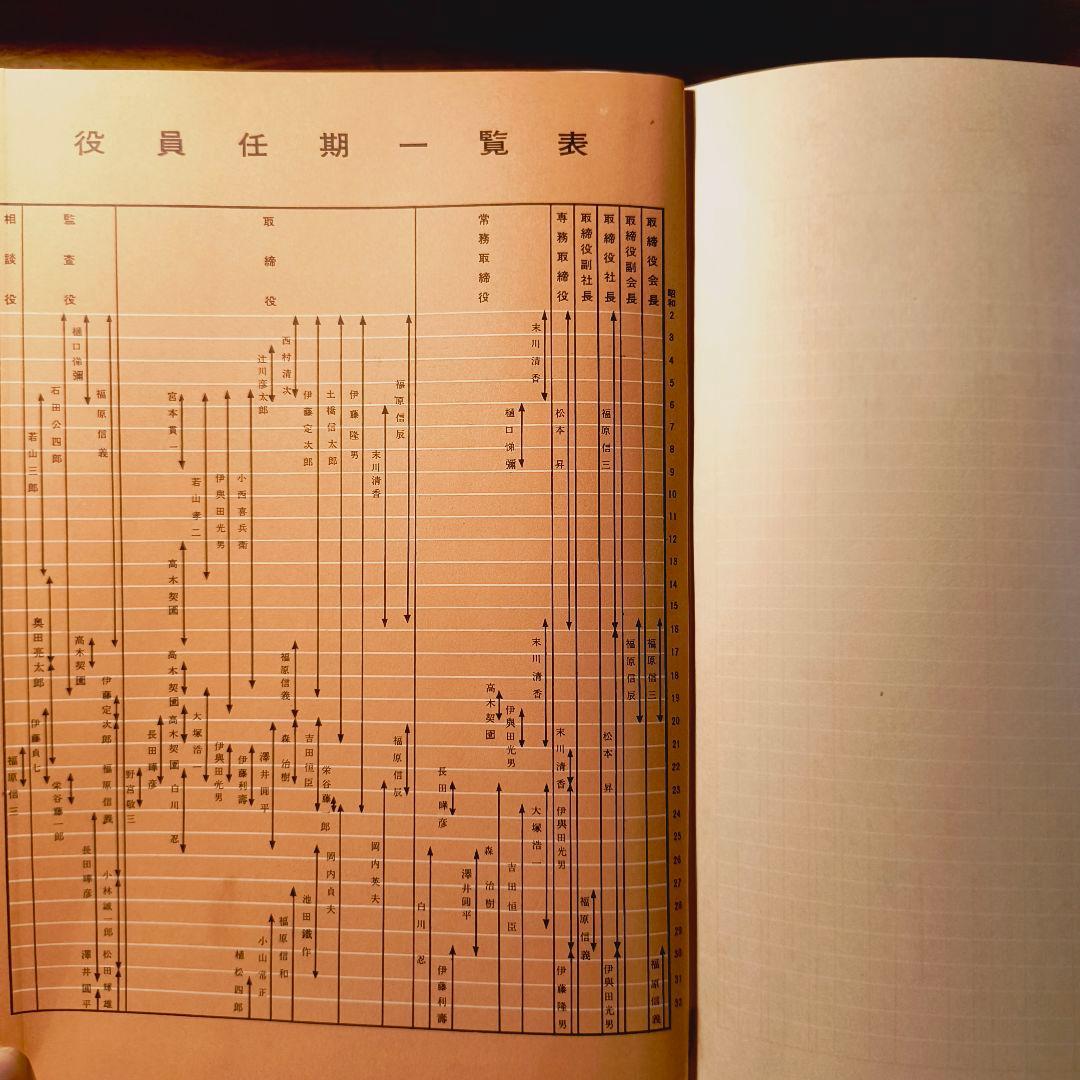 役員任期一覧表
昭和
2
3
4
5
6
7
8
9
10
11
12
13
14
15
16
17
18
19
20
21
22
23
24
25
26
27
28
29
30
31
32
取締役会長
福原信三
福原信義
取締役副会長
福原信辰
取締役社長
福原信三
松本昇
伊與田光男
取締役副社長
福原信義
専務取締役
松本昇
末川清香
伊與田光男
伊藤隆男
常務取締役
末川清香
末川清香
大塚浩一
樋口悌彌
伊與田光男
吉田恒臣
高木契圃
森治樹
澤井圓平
長田曄彦
伊藤利壽
白川忍
取締役
福原信辰
福原信辰
末川清香
岡内英夫
伊藤隆男
土橋信太郎
岡内貞夫
伊藤定次郎
吉田恒臣
池田鐵作
西村清次
福原信義
森治樹
福原信和
辻川彦太郎
澤井圓平
小山常正
小西喜兵衛
伊藤利壽
植松四郎
伊與田光男
伊與田光男
若山孝二
大塚浩一
宮本貫一
高木契圃
高木契圃
高木契圃
白川忍
長田曄彦
野宮敬三
監査役
福原信義
伊藤定次郎
福原信義
小林誠一郎
松田輝雄
樋口悌彌
高木契圃
長田曄彦
澤井圓平
石田公四郎
栄谷藤一郎
若山三郎
奥田亮太郎
伊藤貞七
相談役
福原信三